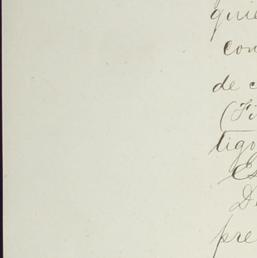 quie
con
de c
(Fi
tigo
Es
D
pre